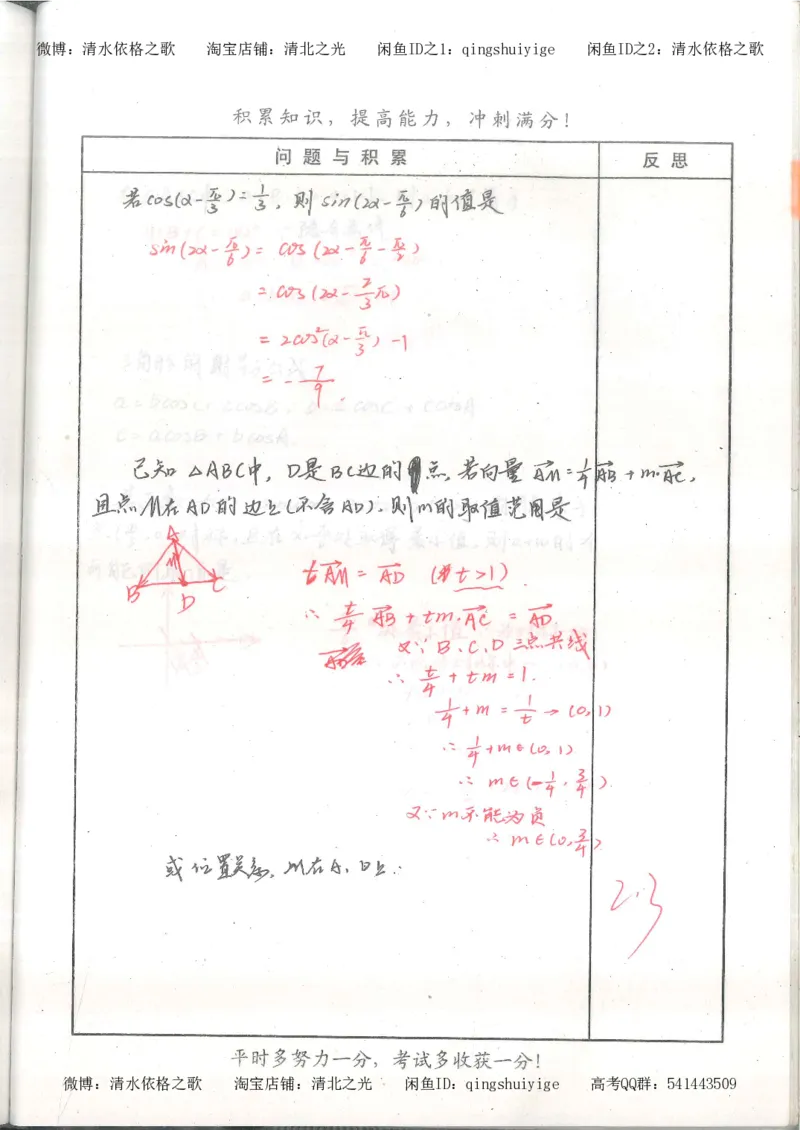 微博：清水依格之歌 淘宝店铺：清北之光 闲鱼ID之1：qingshuiyige 闲鱼ID之2：清水依格之歌
积累知识，提高能力，冲刺满分！
问题与积累 反思
若cos(α-π/3)=1/3，则sin(2α-π/6)的值是
sin(2α-π/6)=cos(2α-π/6-π/2)
=cos(2α-2/3π)
=2cos²(α-π/3)-1
=-7/9.
已知△ABC中，D是BC边的点，若向量AM=1/4AB+m·AC，
且点M在AD的边上(不含AD)，则m的取值范围是
A
M
B D C
tAM=AD (t>1)
∴ t/4AB+tm·AC=AD.
又∵B、C、D三点共线
∴ t/4+tm=1.
1/4+m=1/t→(0,1)
∴1/4+m∈(0,1)
∴m∈(-1/4,3/4).
又∵m不能为负
∴m∈(0,3/4)
或位置关系，M在A、D上.
23
平时多努力一分，考试多收获一分！
微博：清水依格之歌 淘宝店铺：清北之光 闲鱼ID：qingshuiyige 高考QQ群：541443509